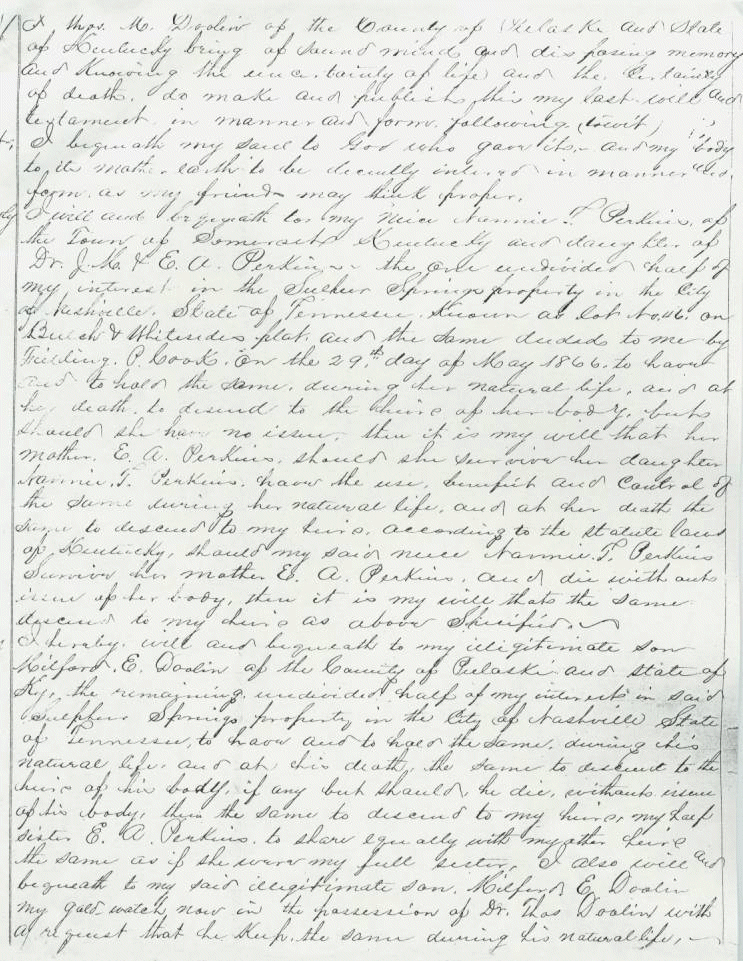 I Thos. M. Doolin of the County of Pulaski and State
of Kentucky being of sound mind and disposing memory
and knowing the uncertainty of life and the certainty
of death. do make and publish this my last will and
testament in manner and form following (towit)
I bequeath my soul to God who gave it, and my body
to its mother earth to be decently intered in manner and
form as my friends may think proper.
I will and bequeath to my niece Nannie. T. Perkins, of
the Town of Somerset Kentucky and daughter of
Dr. J. M. & E. A. Perkins the one undivided half of
my interest in the Sulphur Springs property in the City
of Nashville. State of Tennessee. Known as lot No. 46. on
& Whitesides plat. and the same deeded to me by
Fielding. P. Cook. On the 29th day of May 1866. to have
and to hold the same, during her natural life, and at
her death, to descend to the heirs of her body, but
should she have no issue, then it is my will that her
mother, E. A. Perkins, should she survive her daughter
Nannie. T. Perkins. have the use, benefit and control of
the same during her natural life, and at her death the
same to descend to my heirs, according to the statute laws
of Kentucky, should my said niece Nannie. T. Perkins
survive her mother E. A. Perkins, and die without
issue of her body, then it is my will that the same
descend to my heirs as above specified.
I hereby will and bequeath to my illigitimate son
Milford. E. Doolin of the County of Pulaski and state of
Ky, the remaining undivided half of my interest in said
Sulpher Springs property in the City of Nashville State
of Tennessee, to have and to hold the same, during his
natural life. and at his death, the same to descend to the
heirs of his body, if any but should he die, without issue
of his body, then the same to descend to my heirs, my half
sister E. A. Perkins. to share equally with my other heirs
the same as if she were my full sister, I also will and
bequeath to my said illigitimate son, Milford E. Doolin
my gold watch now in the possession of Dr. Thos Doolin with
a request that he keep the same during his natural life,